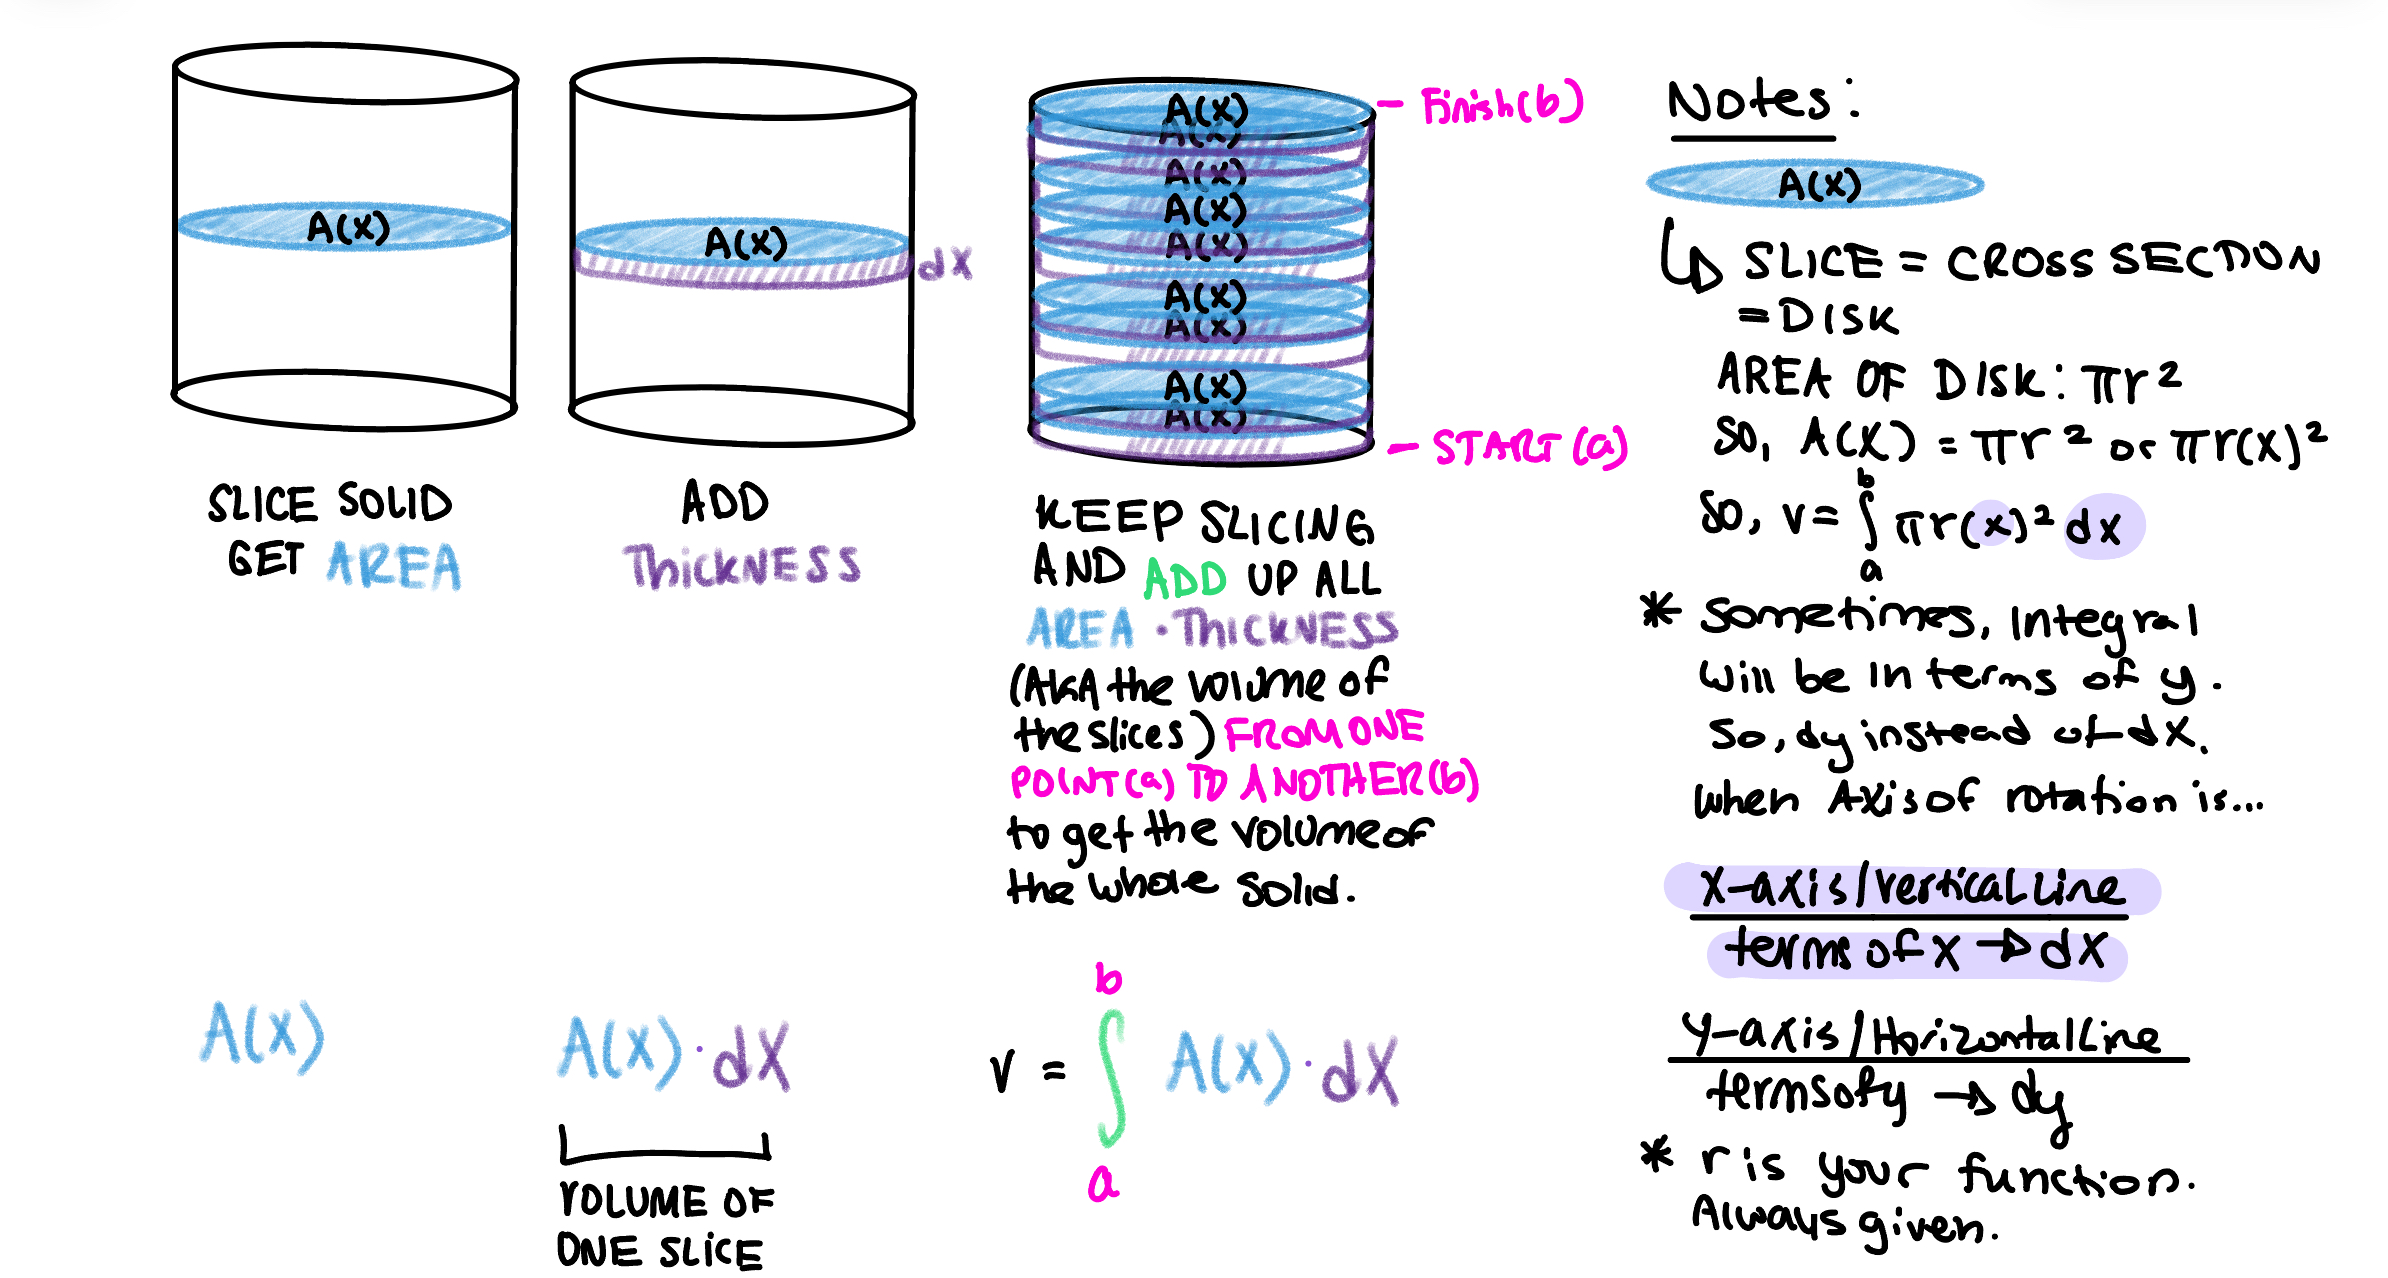 A(x)
SLICE SOLID
GET AREA
A(x)
A(x)
dx
ADD
THICKNESS
A(x) · dx
VOLUME OF
ONE SLICE
A(x)
A(x)
A(x)
A(x)
A(x)
A(x)
A(x)
A(x)
A(x)
- Finish (b)
- START (a)
KEEP SLICING
AND ADD UP ALL
AREA · THICKNESS
(AKA the volume of
the slices) FROM ONE
POINT (a) TO ANOTHER (b)
to get the volume of
the whole solid.
V = ∫ₐᵇ A(x) · dx
Notes:
A(x)
↳ SLICE = CROSS SECTION
= DISK
AREA OF DISK: πr²
SO, A(X) = πr² or πr(x)²
SO, V = ∫ₐᵇ πr(x)² dx
* Sometimes, Integral
will be in terms of y.
So, dy instead of dx.
when Axis of rotation is...
X-axis/vertical Line
terms of x → dx
Y-axis/Horizontal Line
terms of y → dy
* r is your function.
Always given.